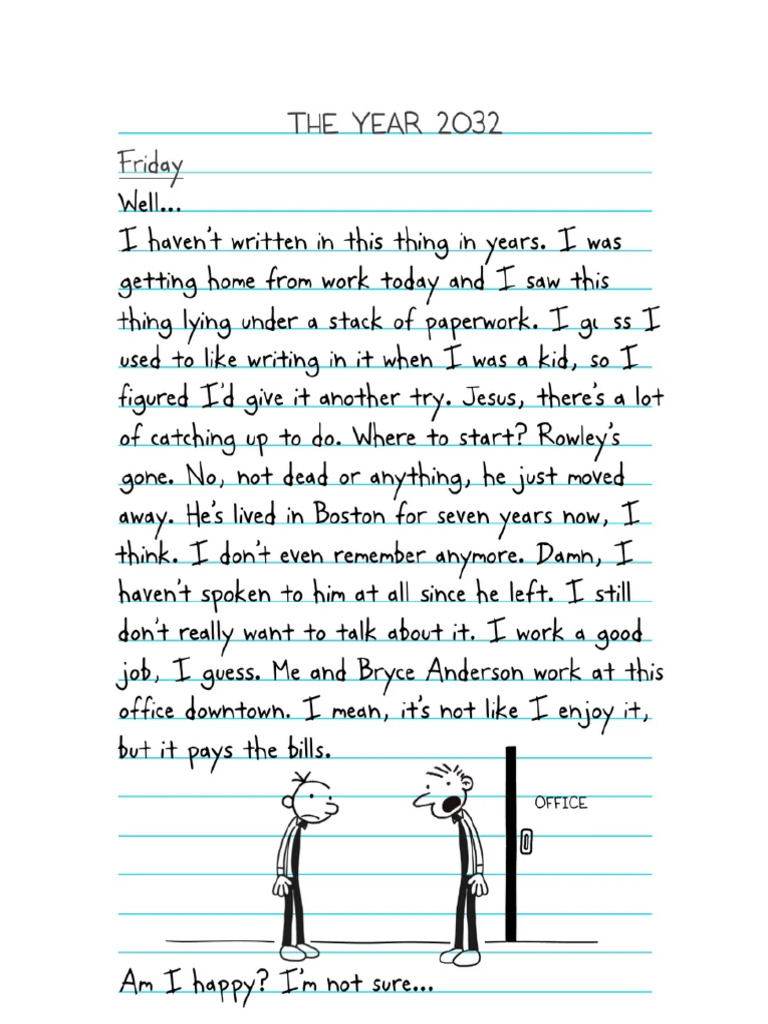 THE YEAR 2032
Friday
Well...
I haven't written in this thing in years. I was
getting home from work today and I saw this
thing lying under a stack of paperwork. I gu ss I
used to like writing in it when I was a kid, so I
figured I'd give it another try. Jesus, there's a lot
of catching up to do. Where to start? Rowley's
gone. No, not dead or anything, he just moved
away. He's lived in Boston for seven years now, I
think. I don't even remember anymore. Damn, I
haven't spoken to him at all since he left. I still
don't really want to talk about it. I work a good
job, I guess. Me and Bryce Anderson work at this
office downtown. I mean, it's not like I enjoy it,
but it pays the bills.
OFFICE
Am I happy? I'm not sure...